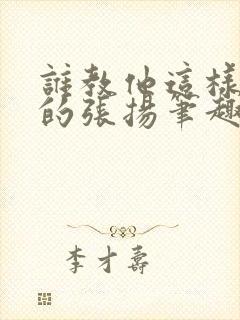 誰教他這樣
的張揚筆趣
李才壽